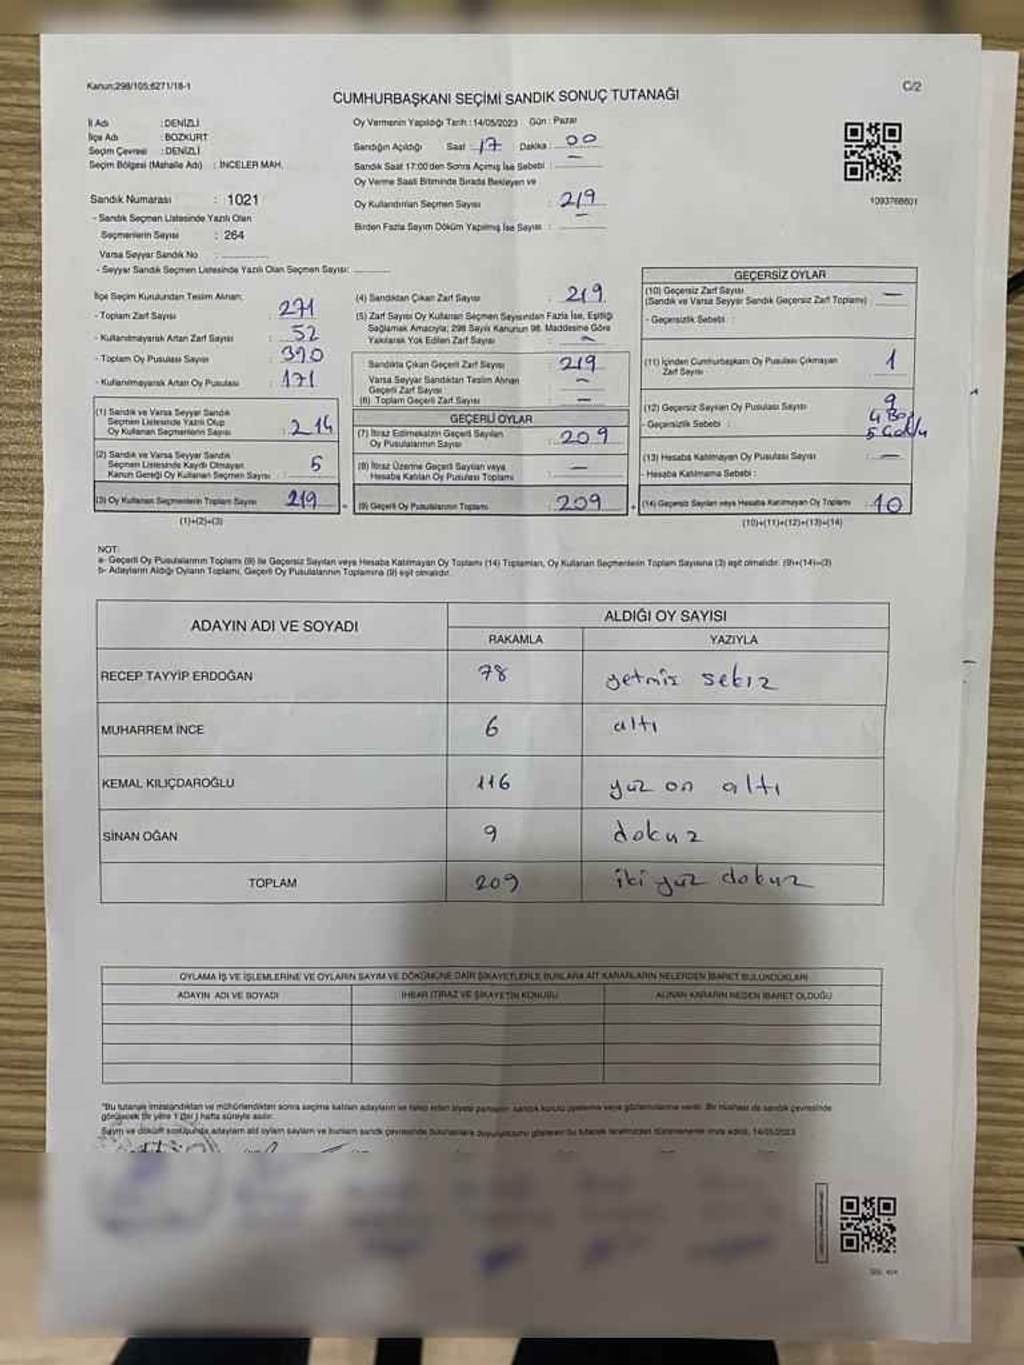 Kanun;298/105;6271/18-1
C/2
CUMHURBAŞKANI SEÇİMİ SANDIK SONUÇ TUTANAĞI
İl Adı : DENİZLİ
İlçe Adı : BOZKURT
Seçim Çevresi : DENİZLİ
Seçim Bölgesi (Mahalle Adı) : İNCELER MAH.
Sandık Numarası : 1021
- Sandık Seçmen Listesinde Yazılı Olan
Seçmenlerin Sayısı : 264
Varsa Seyyar Sandık No : ............
- Seyyar Sandık Seçmen Listesinde Yazılı Olan Seçmen Sayısı: ............
Oy Vermenin Yapıldığı Tarih : 14/05/2023 Gün : Pazar
Sandığın Açıldığı Saat : 17 Dakika : 00
Sandık Saat 17:00'den Sonra Açılmış İse Sebebi : —
Oy Verme Saati Bitiminde Sırada Bekleyen ve
Oy Kullandırılan Seçmen Sayısı : 219
Birden Fazla Sayım Döküm Yapılmış İse Sayısı : —
1093768601
İlçe Seçim Kurulundan Teslim Alınan;
- Toplam Zarf Sayısı : 271
- Kullanılmayarak Artan Zarf Sayısı : 52
- Toplam Oy Pusulası Sayısı : 390
- Kullanılmayarak Artan Oy Pusulası : 171
(1) Sandık ve Varsa Seyyar Sandık
Seçmen Listesinde Yazılı Olup
Oy Kullanan Seçmenlerin Sayısı : 214
(2) Sandık ve Varsa Seyyar Sandık
Seçmen Listesinde Kaydı Olmayan
Kanun Gereği Oy Kullanan Seçmen Sayısı : 5
(3) Oy Kullanan Seçmenlerin Toplam Sayısı 219
(1)+(2)=(3)
(4) Sandıktan Çıkan Zarf Sayısı : 219
(5) Zarf Sayısı Oy Kullanan Seçmen Sayısından Fazla İse, Eşitliği
Sağlamak Amacıyla; 298 Sayılı Kanunun 98. Maddesine Göre
Yakılarak Yok Edilen Zarf Sayısı : —
Sandıkta Çıkan Geçerli Zarf Sayısı : 219
Varsa Seyyar Sandıktan Teslim Alınan
Geçerli Zarf Sayısı : —
(6) Toplam Geçerli Zarf Sayısı : —
GEÇERLİ OYLAR
(7) İtiraz Edilmeksizin Geçerli Sayılan
Oy Pusulalarının Sayısı : 209
(8) İtiraz Üzerine Geçerli Sayılan veya
Hesaba Katılan Oy Pusulası Toplamı : —
(9) Geçerli Oy Pusulalarının Toplamı : 209
GEÇERSİZ OYLAR
(10) Geçersiz Zarf Sayısı
(Sandık ve Varsa Seyyar Sandık Geçersiz Zarf Toplamı) : —
- Geçersizlik Sebebi :
(11) İçinden Cumhurbaşkanı Oy Pusulası Çıkmayan
Zarf Sayısı : 1
(12) Geçersiz Sayılan Oy Pusulası Sayısı : 9
- Geçersizlik Sebebi : 4 Boş
5
(13) Hesaba Katılmayan Oy Pusulası Sayısı : —
- Hesaba Katılmama Sebebi :
(14) Geçersiz Sayılan veya Hesaba Katılmayan Oy Toplamı : 10
(10)+(11)+(12)+(13)=(14)
NOT:
a- Geçerli Oy Pusulalarının Toplamı (9) ile Geçersiz Sayılan veya Hesaba Katılmayan Oy Toplamı (14) Toplamları, Oy Kullanan Seçmenlerin Toplam Sayısına (3) eşit olmalıdır. (9)+(14)=(3)
b- Adayların Aldığı Oyların Toplamı, Geçerli Oy Pusulalarının Toplamına (9) eşit olmalıdır.
ADAYIN ADI VE SOYADI
ALDIĞI OY SAYISI
RAKAMLA YAZIYLA
RECEP TAYYİP ERDOĞAN 78 yetmiş sekiz
MUHARREM İNCE 6 altı
KEMAL KILIÇDAROĞLU 116 yüz on altı
SİNAN OĞAN 9 dokuz
TOPLAM 209 iki yüz dokuz
OYLAMA İŞ VE İŞLEMLERİNE VE OYLARIN SAYIM VE DÖKÜMÜNE DAİR ŞİKAYETLERLE BUNLARA AİT KARARLARIN NELERDEN İBARET BULUNDUKLARI
ADAYIN ADI VE SOYADI İHBAR İTİRAZ VE ŞİKAYETİN KONUSU ALINAN KARARIN NEDEN İBARET OLDUĞU
"Bu tutanak imzalandıktan ve mühürlendikten sonra seçime katılan adayların ve talep eden siyasi partilerin sandık kurulu üyelerine veya gözlemcilerine verilir. Bir nüshası da sandık çevresinde
görülecek bir yere 1 (bir) hafta süreyle asılır.
Sayım ve döküm sonuçunda adayların
14/05/2023